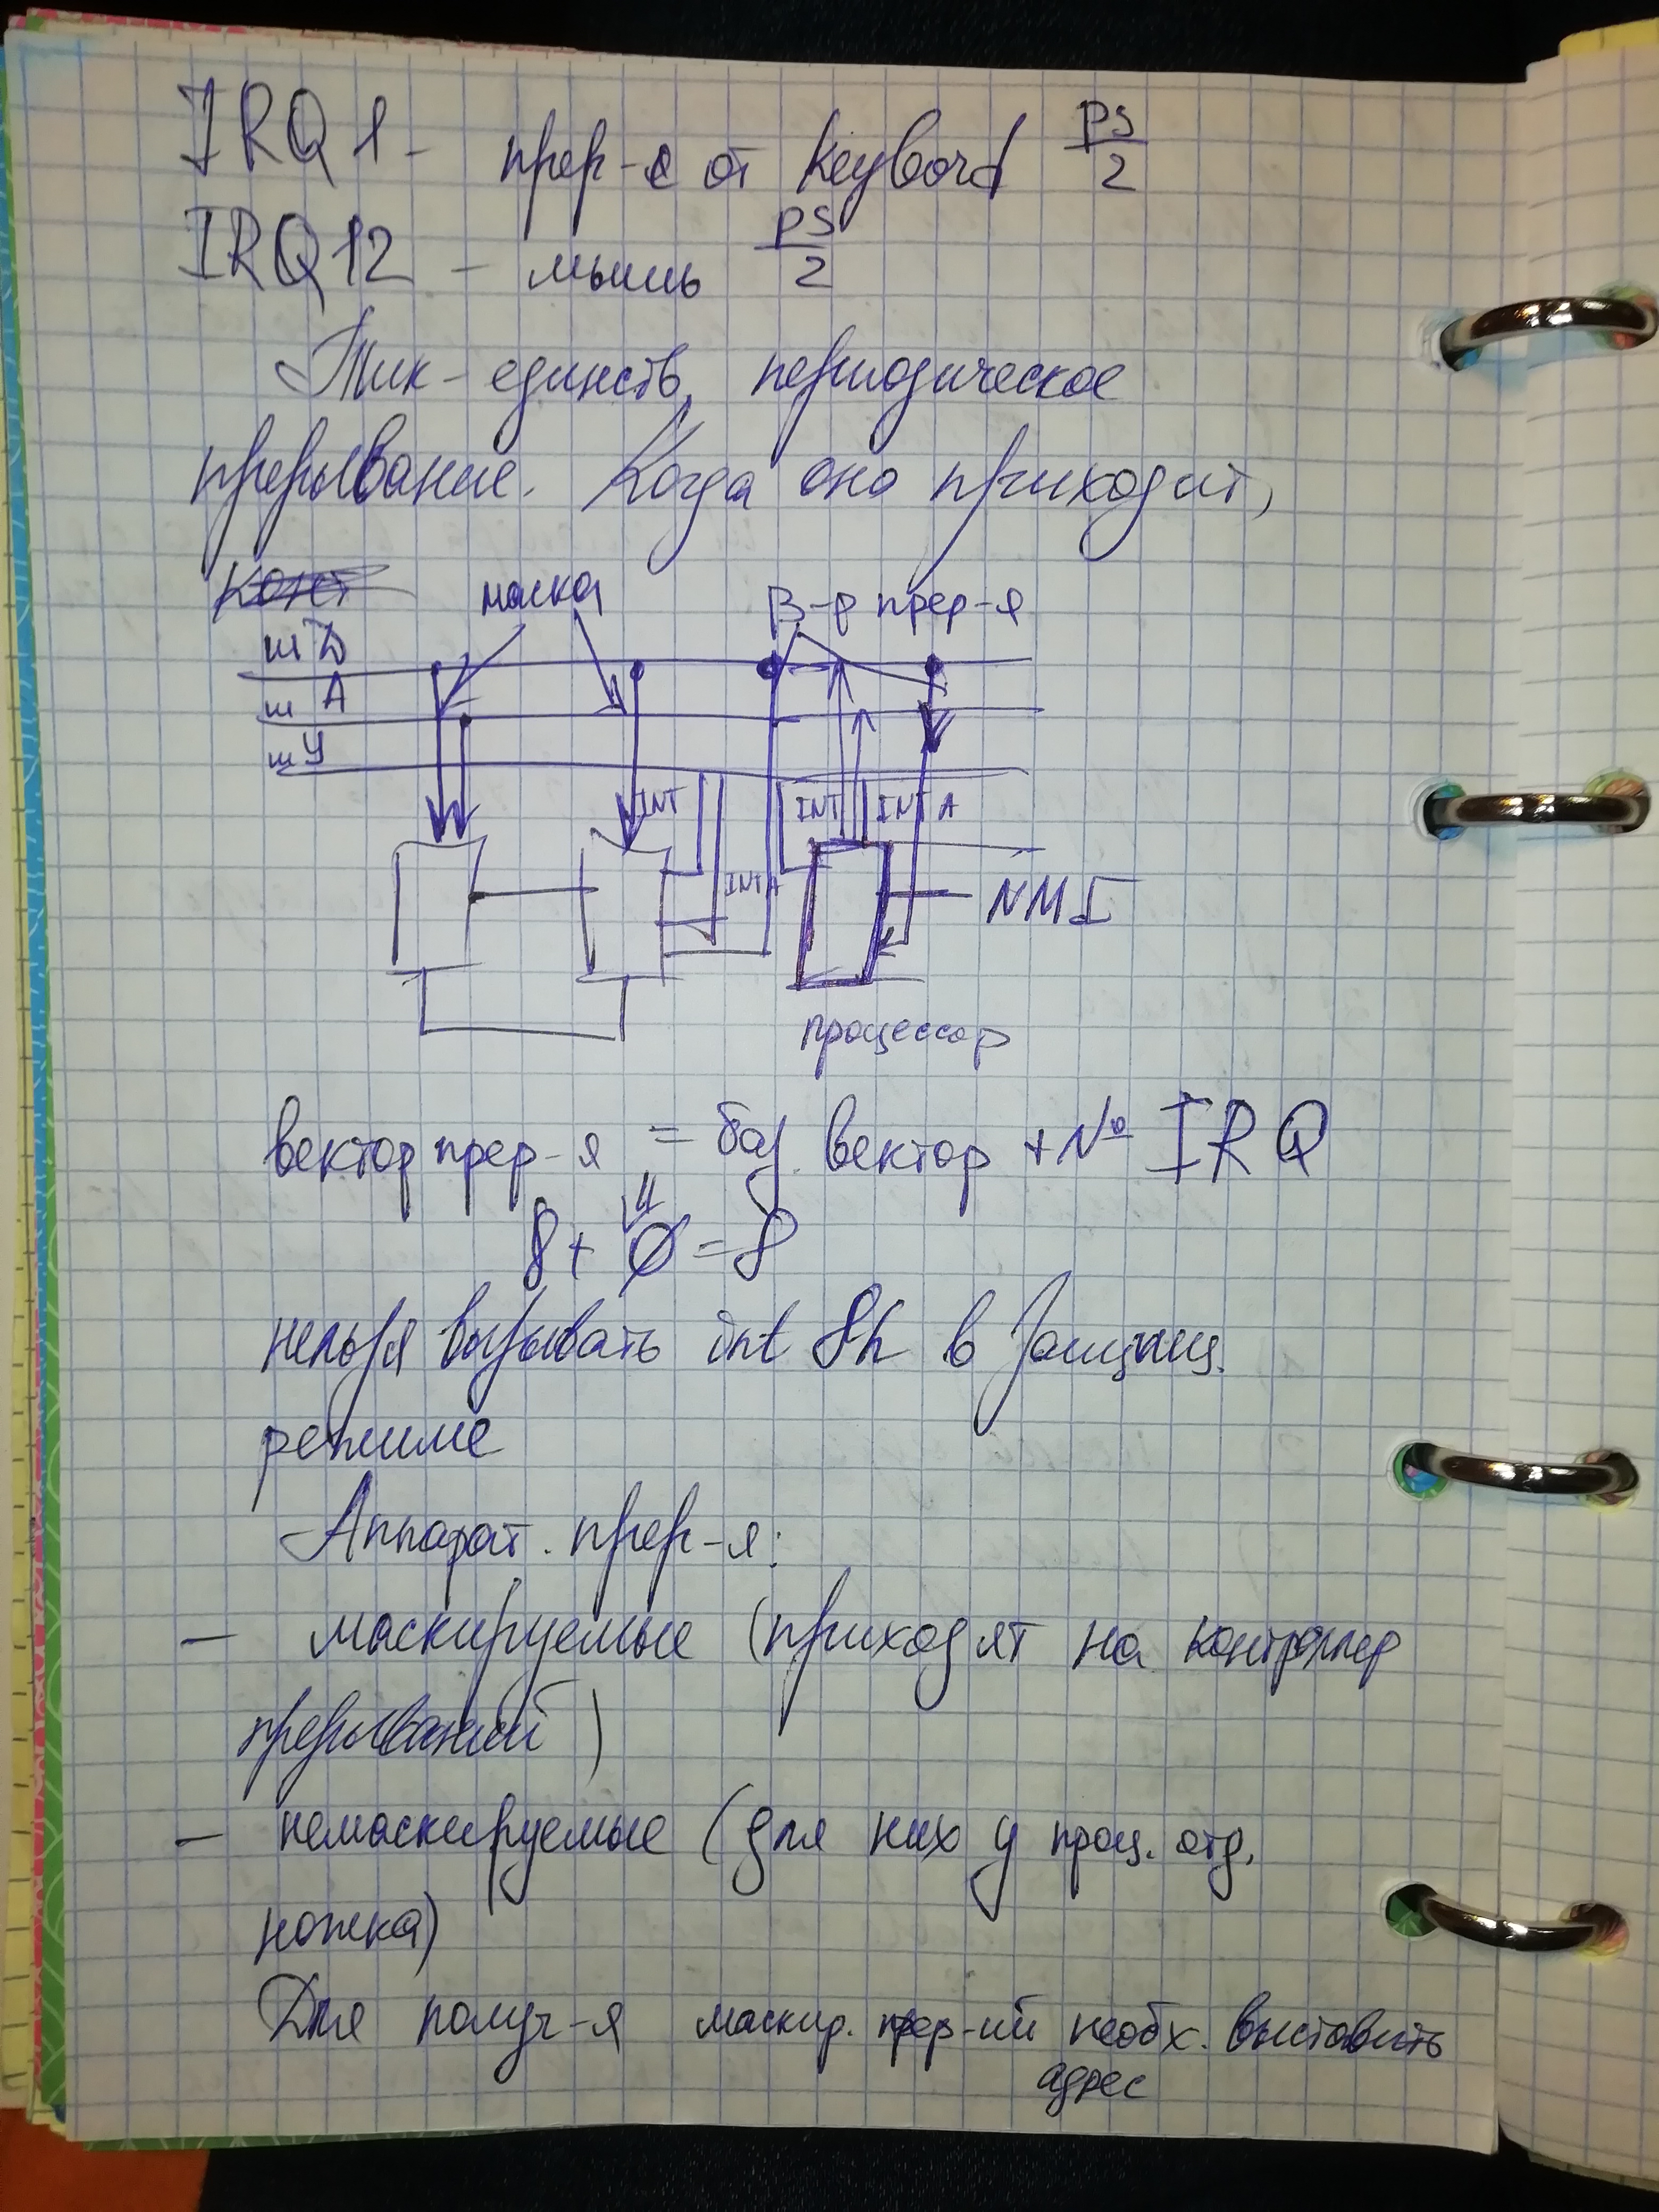 IRQ1 - прер-е от keybord PS/2
IRQ12 - мышь PS/2
Тик - единств. периодическое
прерывание. Когда оно приходит,
маска В-р прер-я
шД
шА
шУ
INT INT INTA
INTA NMI
процессор
вектор прер-я = баз. вектор + № IRQ
8 + 0 = 8
нельзя вызывать int 8h в защищ.
режиме
Аппарат. прер-я:
- маскируемые (приходят на контроллер
прерываний)
- немаскируемые (для них у проц. отд.
ножка)
Для получ-я маскир. прер-ий необх. выставить
адрес